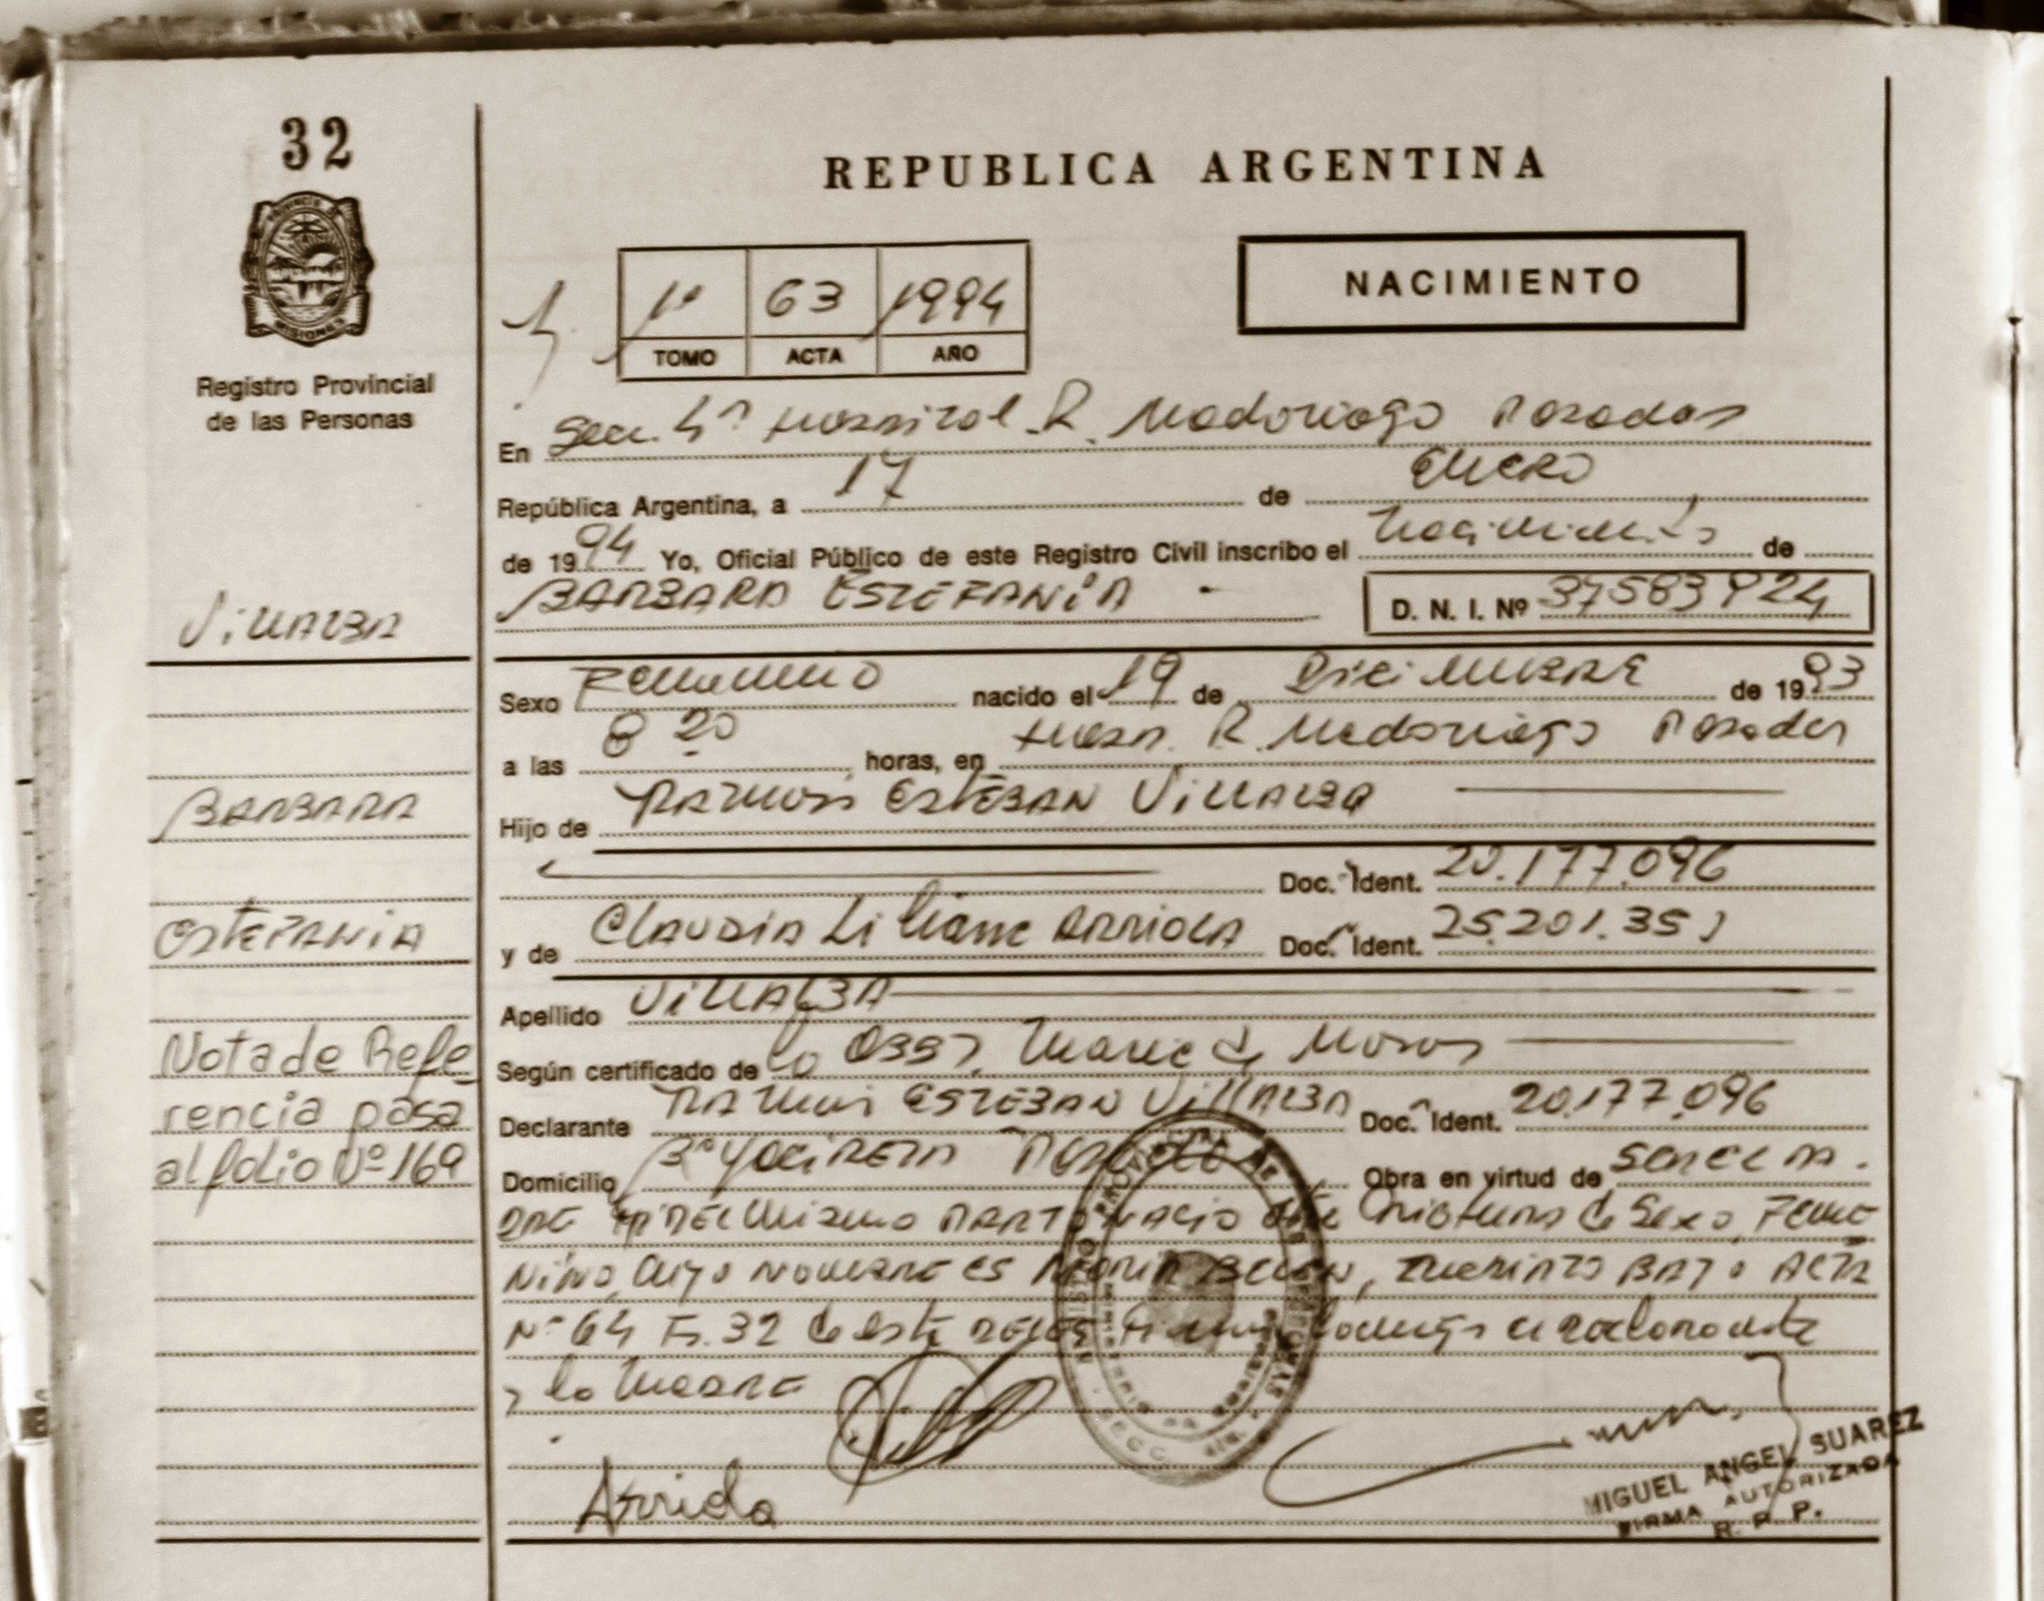 32
REPUBLICA ARGENTINA
NACIMIENTO
1º 63 1994
TOMO ACTA AÑO
PROVINCIA DE
MISIONES
Registro Provincial
de las Personas
En Secc. 4ª Hospital R. Madariaga Posadas
República Argentina, a 17 de ENERO
de 1994 Yo, Oficial Público de este Registro Civil inscribo el nacimiento de
BARBARA ESTEFANIA - D. N. I. Nº 37583924
VILLALBA
Sexo Femenino nacido el 19 de DiciEMBRE de 1993
a las 8 20 horas, en Hosp. R. Madariaga Posadas
BARBARA
Hijo de RAMON ESTEBAN VILLALBA
Doc. Ident. 20.177.096
ESTEFANIA
y de CLAUDIA LiLiana ARRIOLA Doc. Ident. 25.201.351
Apellido VILLALBA
Nota de Refe-
rencia pasa
al folio Nº 169
Según certificado de la Obst.
Declarante RAMON ESTEBAN VILLALBA Doc. Ident. 20.177.096
Domicilio Bº YACIRETA Obra en virtud de
DEL Mismo PARTO NACIO Criatura de Sexo Feme
NiNO, cuyo NOMBRE ES BELEN, INSCRIPTO BAJO ACTA
Nº 64 Fs. 32 de este el declarante
y la MADRE
Arriola
MIGUEL ANGEL SUAREZ
FIRMA AUTORIZADA
R. P. P.